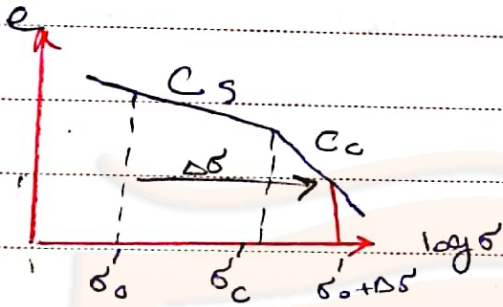 e
Cs
Cc
Δσ
log σ
σ₀'
σc'
σ₀'+Δσ